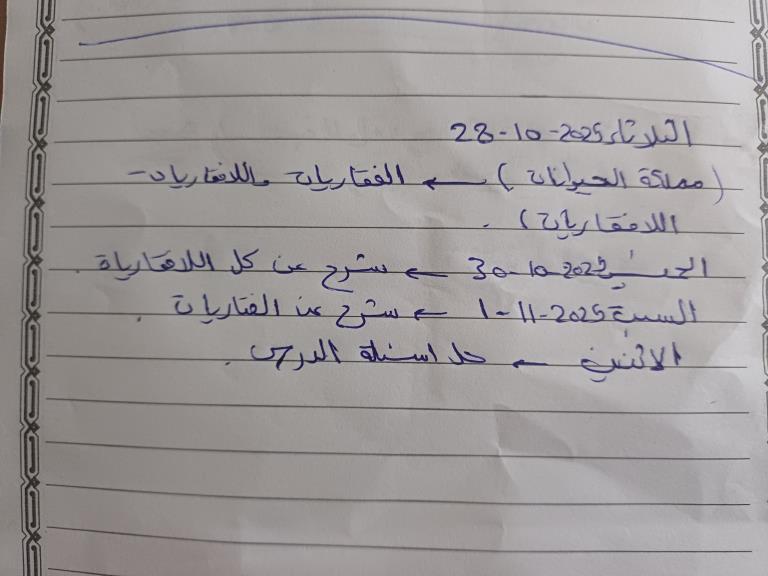 الثلاثاء 28-10-2025
(مملكة الحيوانات) ← الفقاريات واللافقاريات -
اللافقاريات) .
الخميس 30-10-2025 ← شرح عن كل اللافقارياة .
السبت 1-11-2025 ← شرح عن الفقاريات .
الاثنين ← حل اسئلة الدرس .